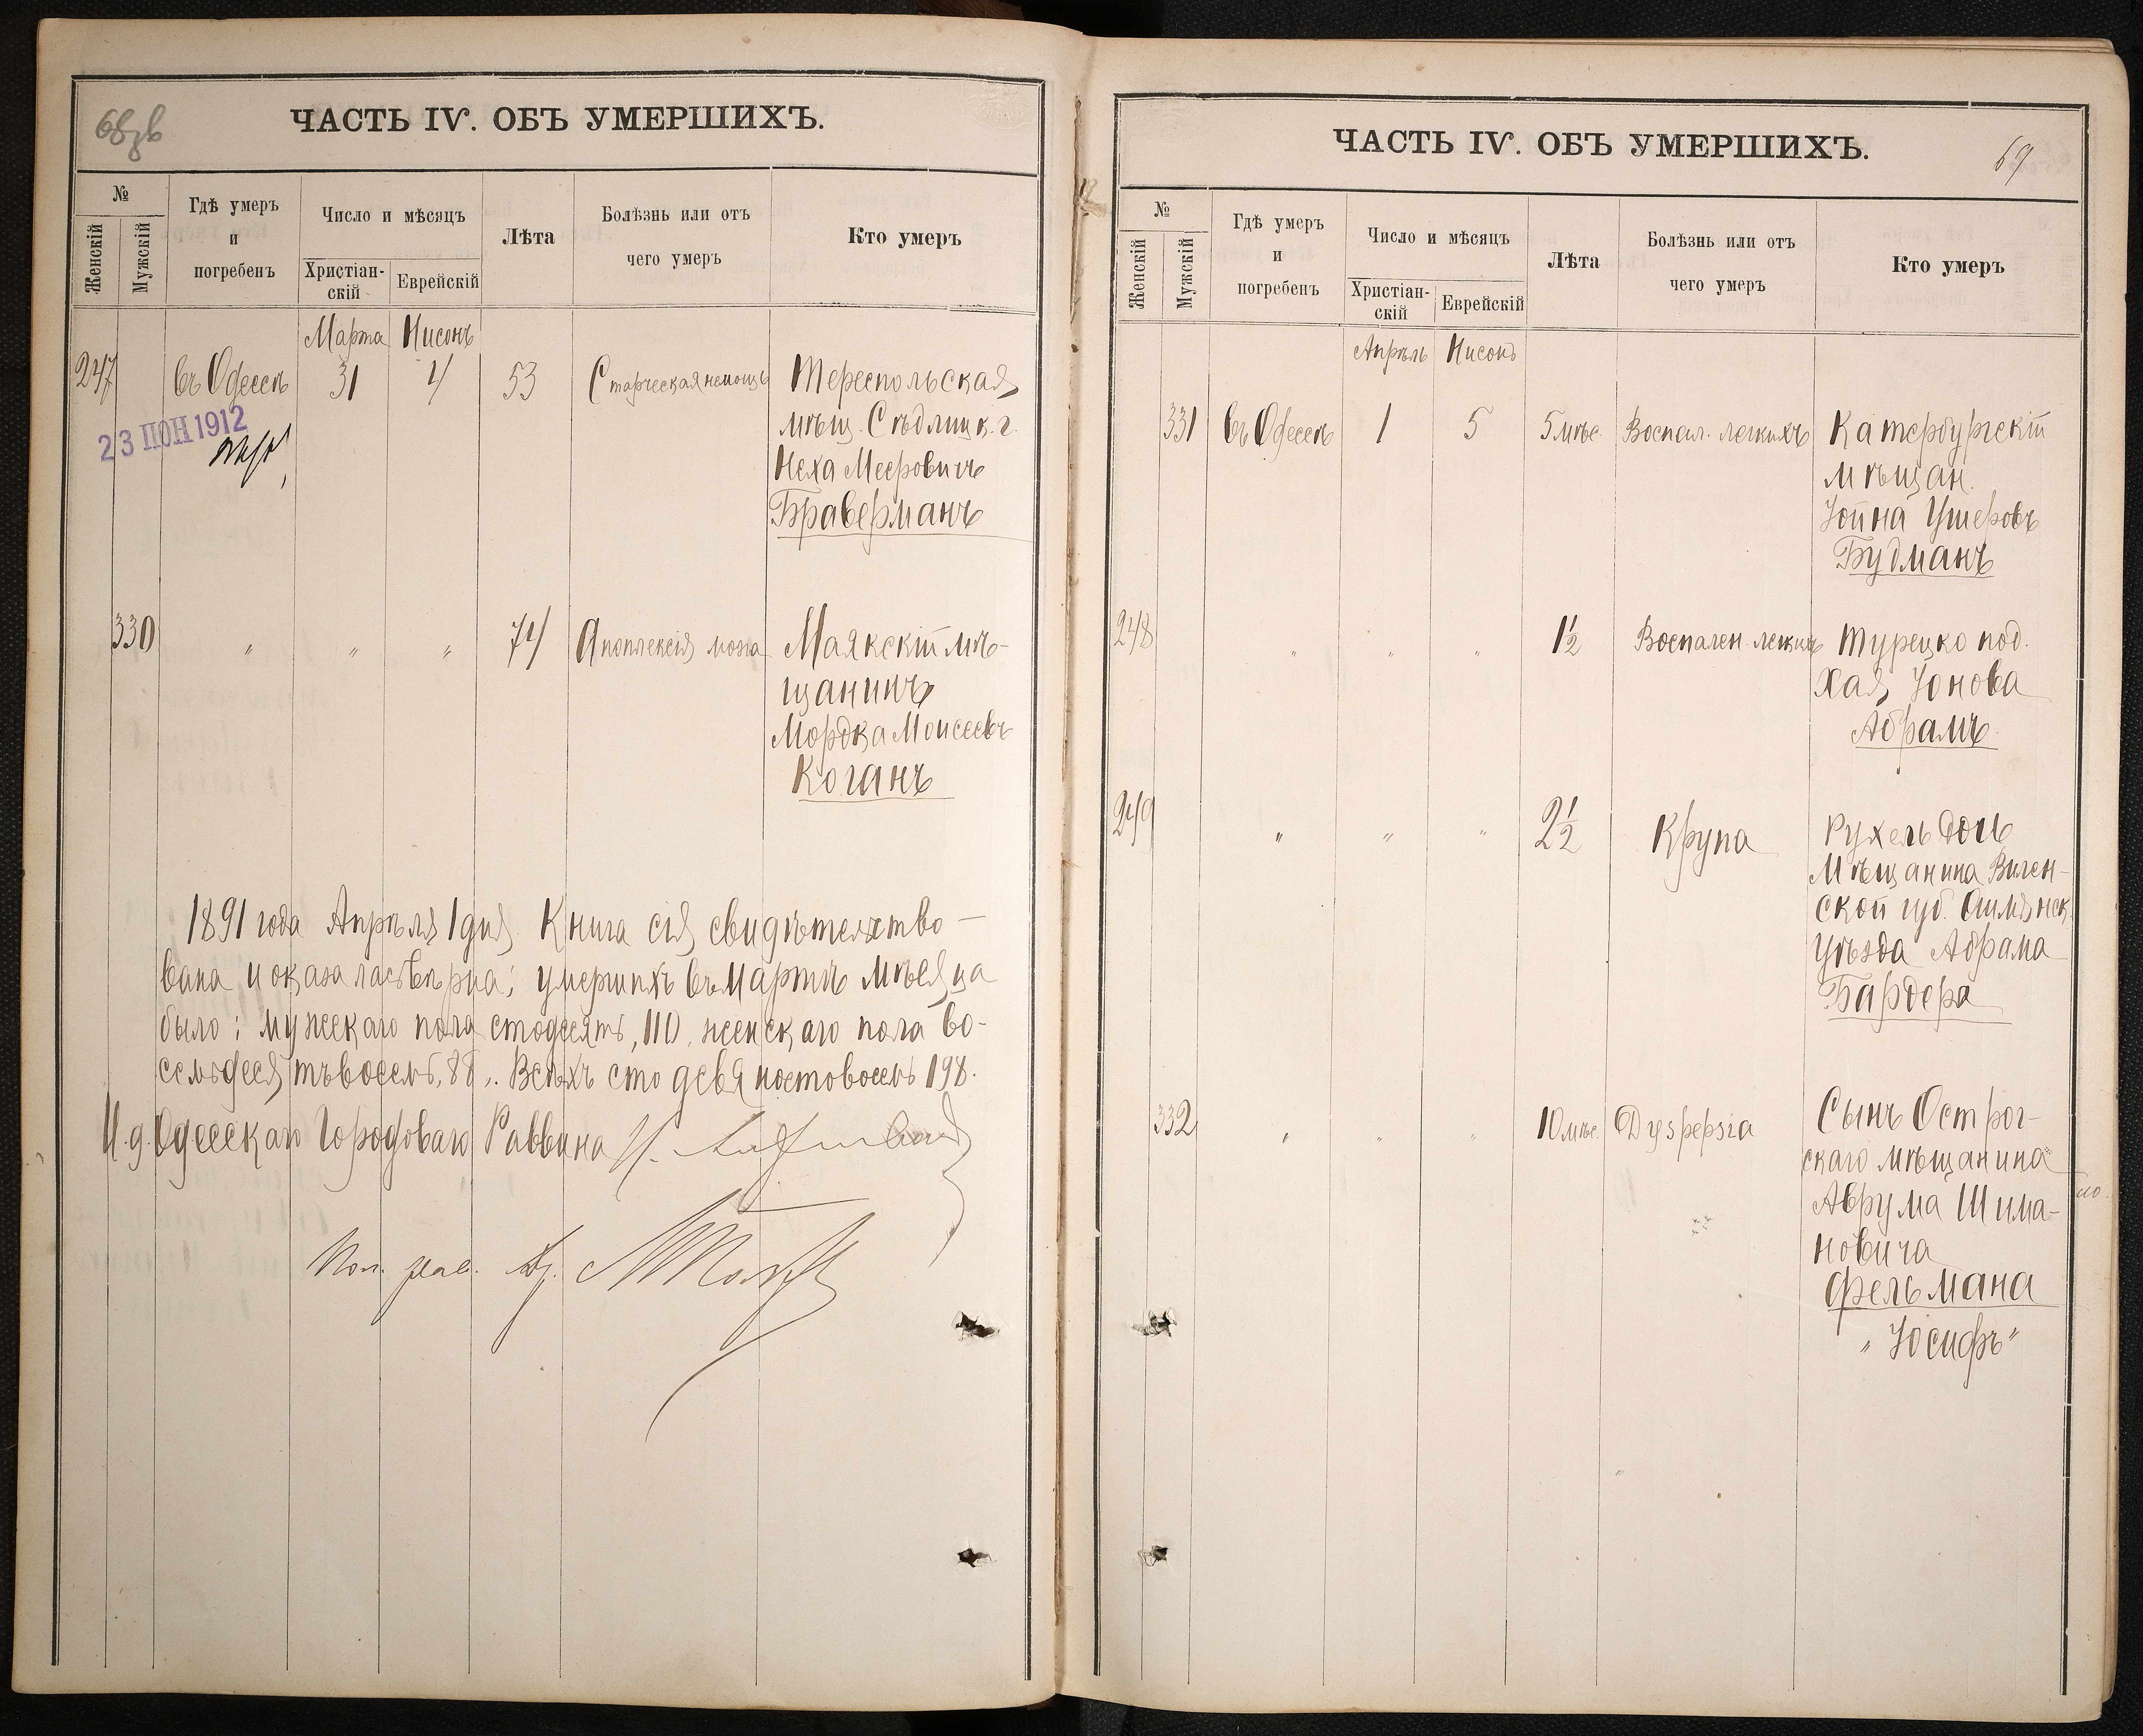 68 зв
ЧАСТЬ IV. ОБЪ УМЕРШИХЪ.
№
Женскій
Мужскій
Гдѣ умеръ
и
погребенъ
Число и мѣсяцъ
Христіан-
скій
Еврейскій
Лѣта
Болѣзнь или отъ
чего умеръ
Кто умеръ
Марта Нисонъ
247 въ Одессѣ 31 4 53 Старческая немощь Тереспольская
мѣщ. Сѣдлицк. г.
Неха Мееровичъ
Браверманъ
23 ІЮН 1912
330 " " " 74 Апоплексія мозга Маякскій мѣ-
щанинъ
Мордка Моисеевъ
Коганъ
1891 года Апрѣля 1 дня. Книга сія свидѣтельство-
вана и оказалась вѣрна; умершихъ въ Мартѣ мѣсяца
было: мужскаго пола стодесять, 110, женскаго пола во-
семьдесятъ восемь, 88,. Всѣхъ сто девяностовосемь 198.
И. д. Одесскаго Городоваго Раввина
69
ЧАСТЬ IV. ОБЪ УМЕРШИХЪ.
№
Женскій
Мужскій
Гдѣ умеръ
и
погребенъ
Число и мѣсяцъ
Христіан-
скій
Еврейскій
Лѣта
Болѣзнь или отъ
чего умеръ
Кто умеръ
Апрѣль Нисонъ
331 въ Одессѣ 1 5 5 мѣс. Воспал. легкихъ Катербургскій
мѣщан.
Іойна Ушеровъ
Будманъ
248 " " " 1½ Воспален. легкихъ Турецко под.
Хая Іонова
Абрамъ
249 " " " 2½ Крупа Рухель дочь
Мѣщанина Вилен-
ской губ. Ошмянск.
Уѣзда Абрама
Бардера
332 " " " 10 мѣс. Dyspepsia Сынъ Острог-
скаго мѣщанина
Аврума Шима-
новича
Фельмана
"Іосифъ"